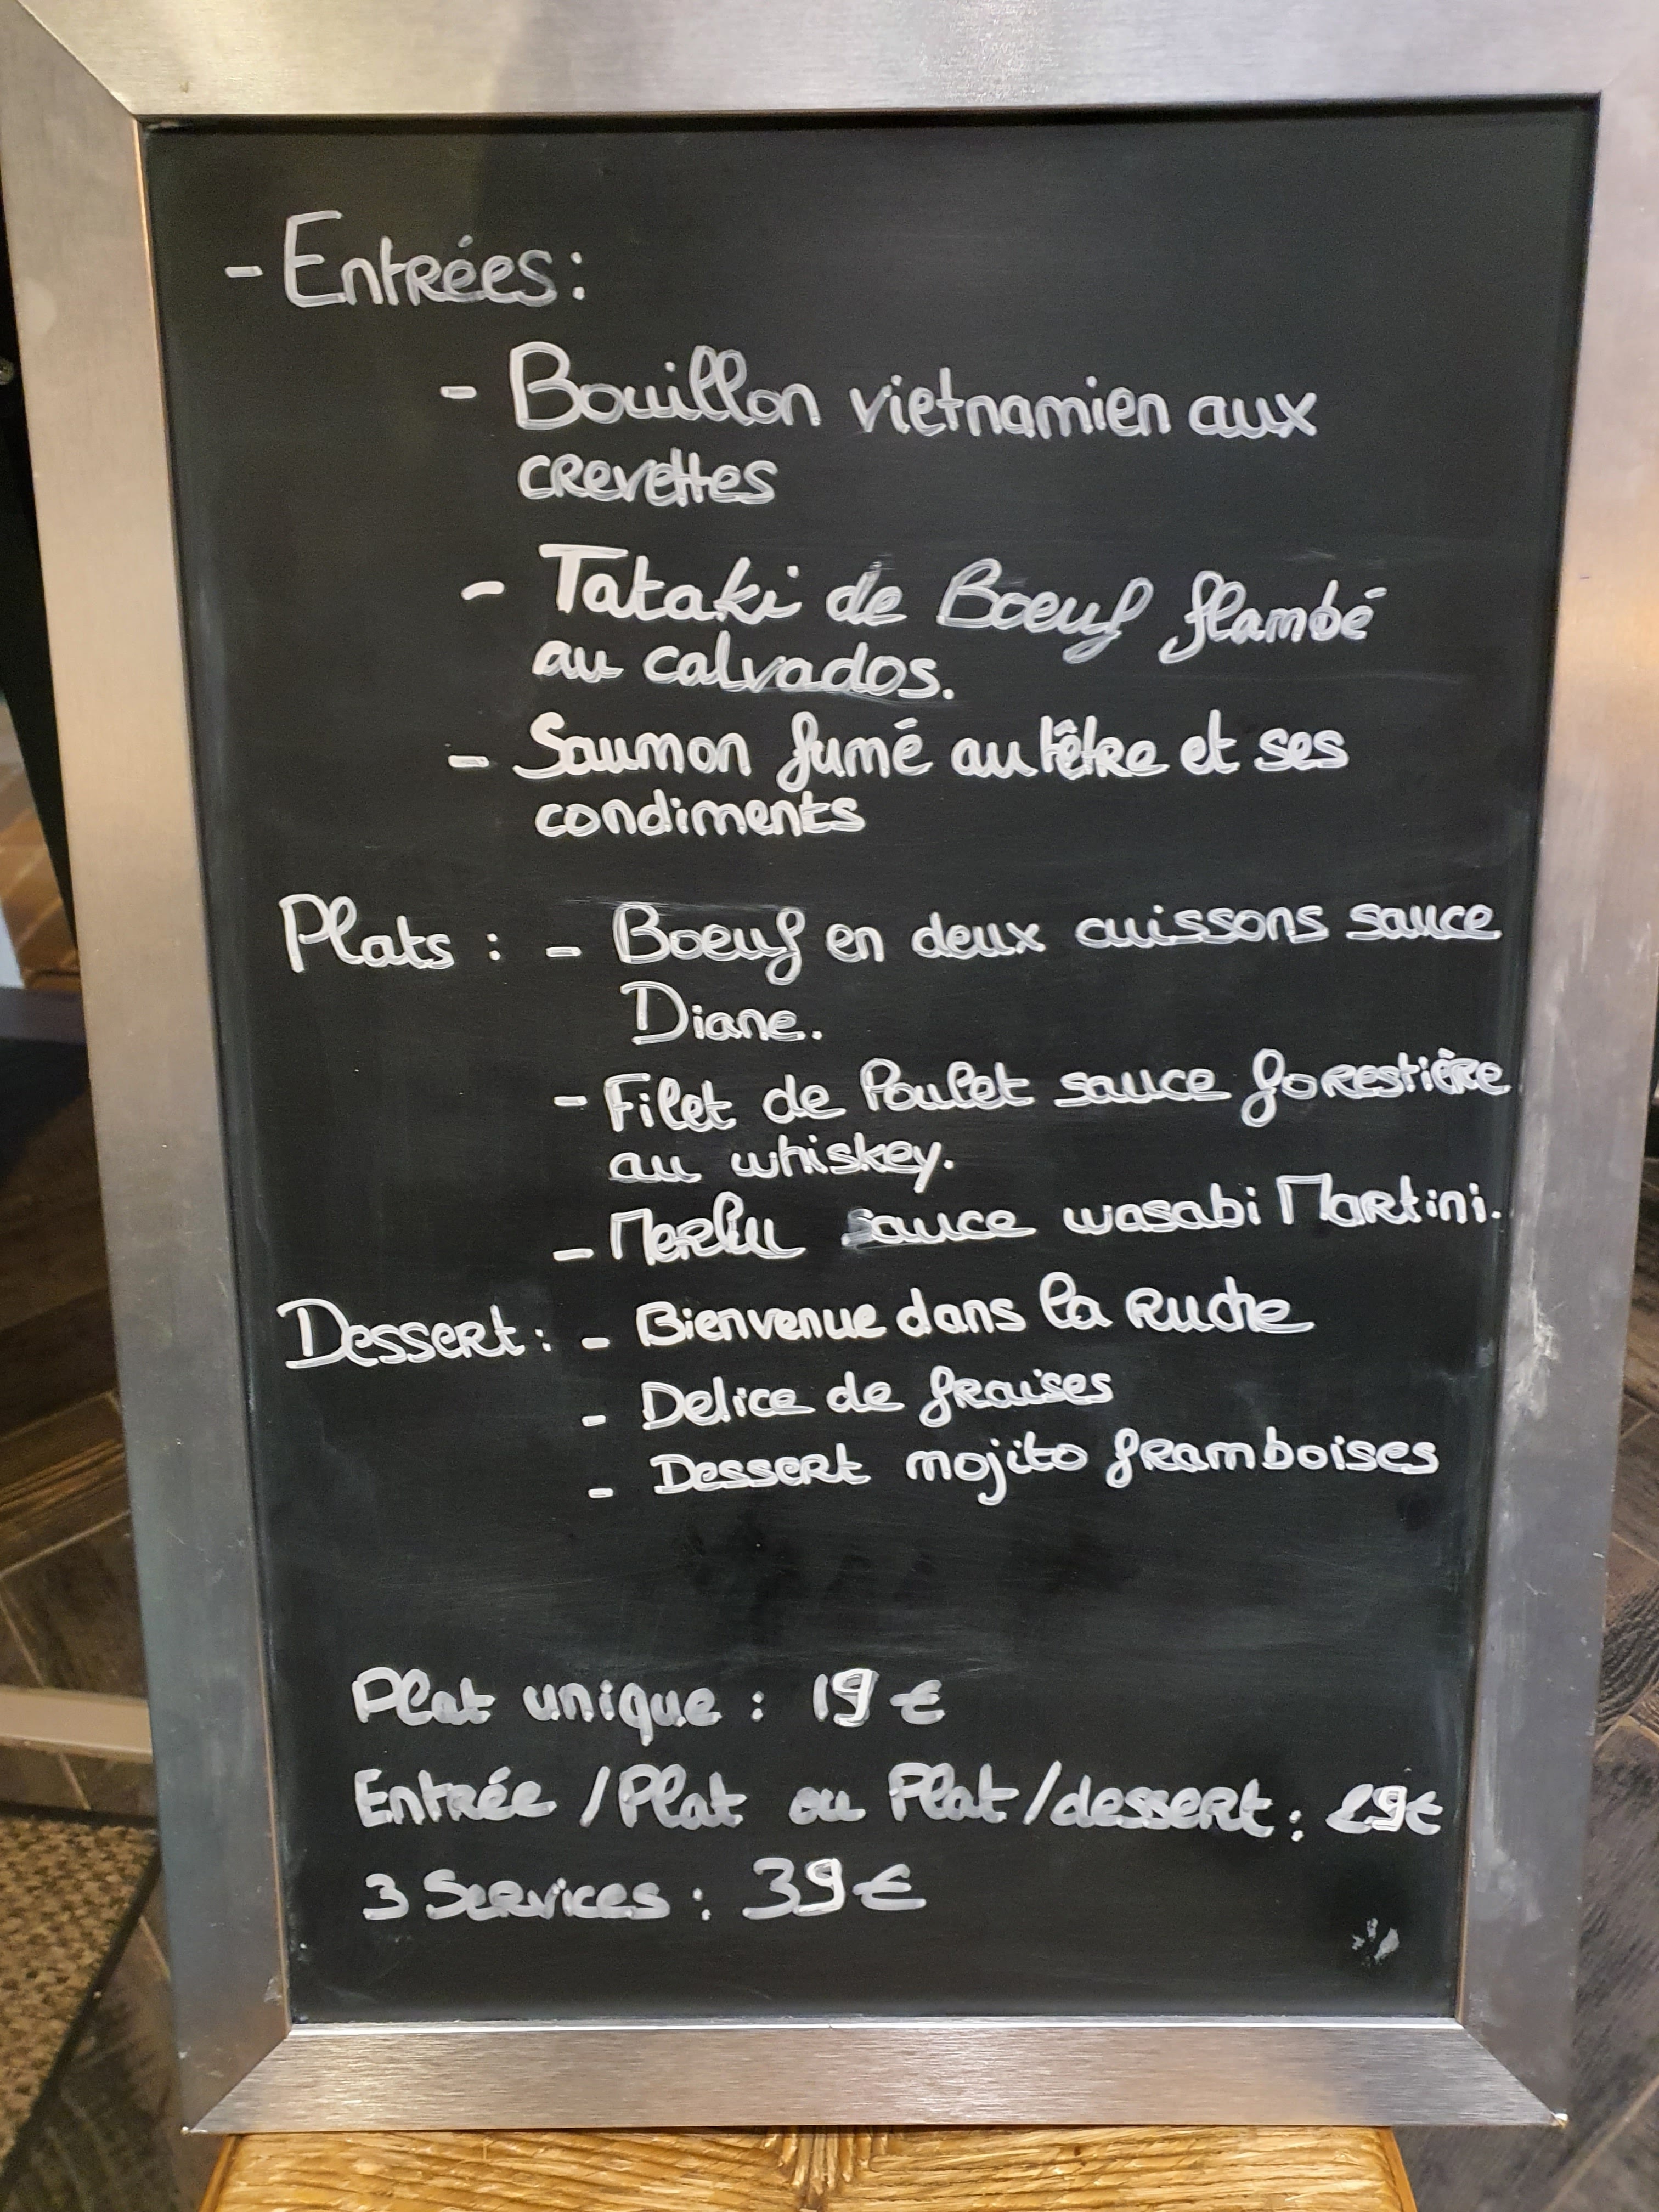 - Entrées :
- Bouillon vietnamien aux
crevettes
- Tataki de Boeuf flambé
au calvados.
- Saumon fumé au hêtre et ses
condiments
Plats : - Boeuf en deux cuissons sauce
Diane.
- Filet de Poulet sauce forestière
au whiskey.
- Merlu sauce wasabi Martini.
Dessert : - Bienvenue dans la Ruche
- Delice de fraises
- Dessert mojito framboises
Plat unique : 19 €
Entrée / Plat ou Plat / dessert : 29€
3 Services : 39€